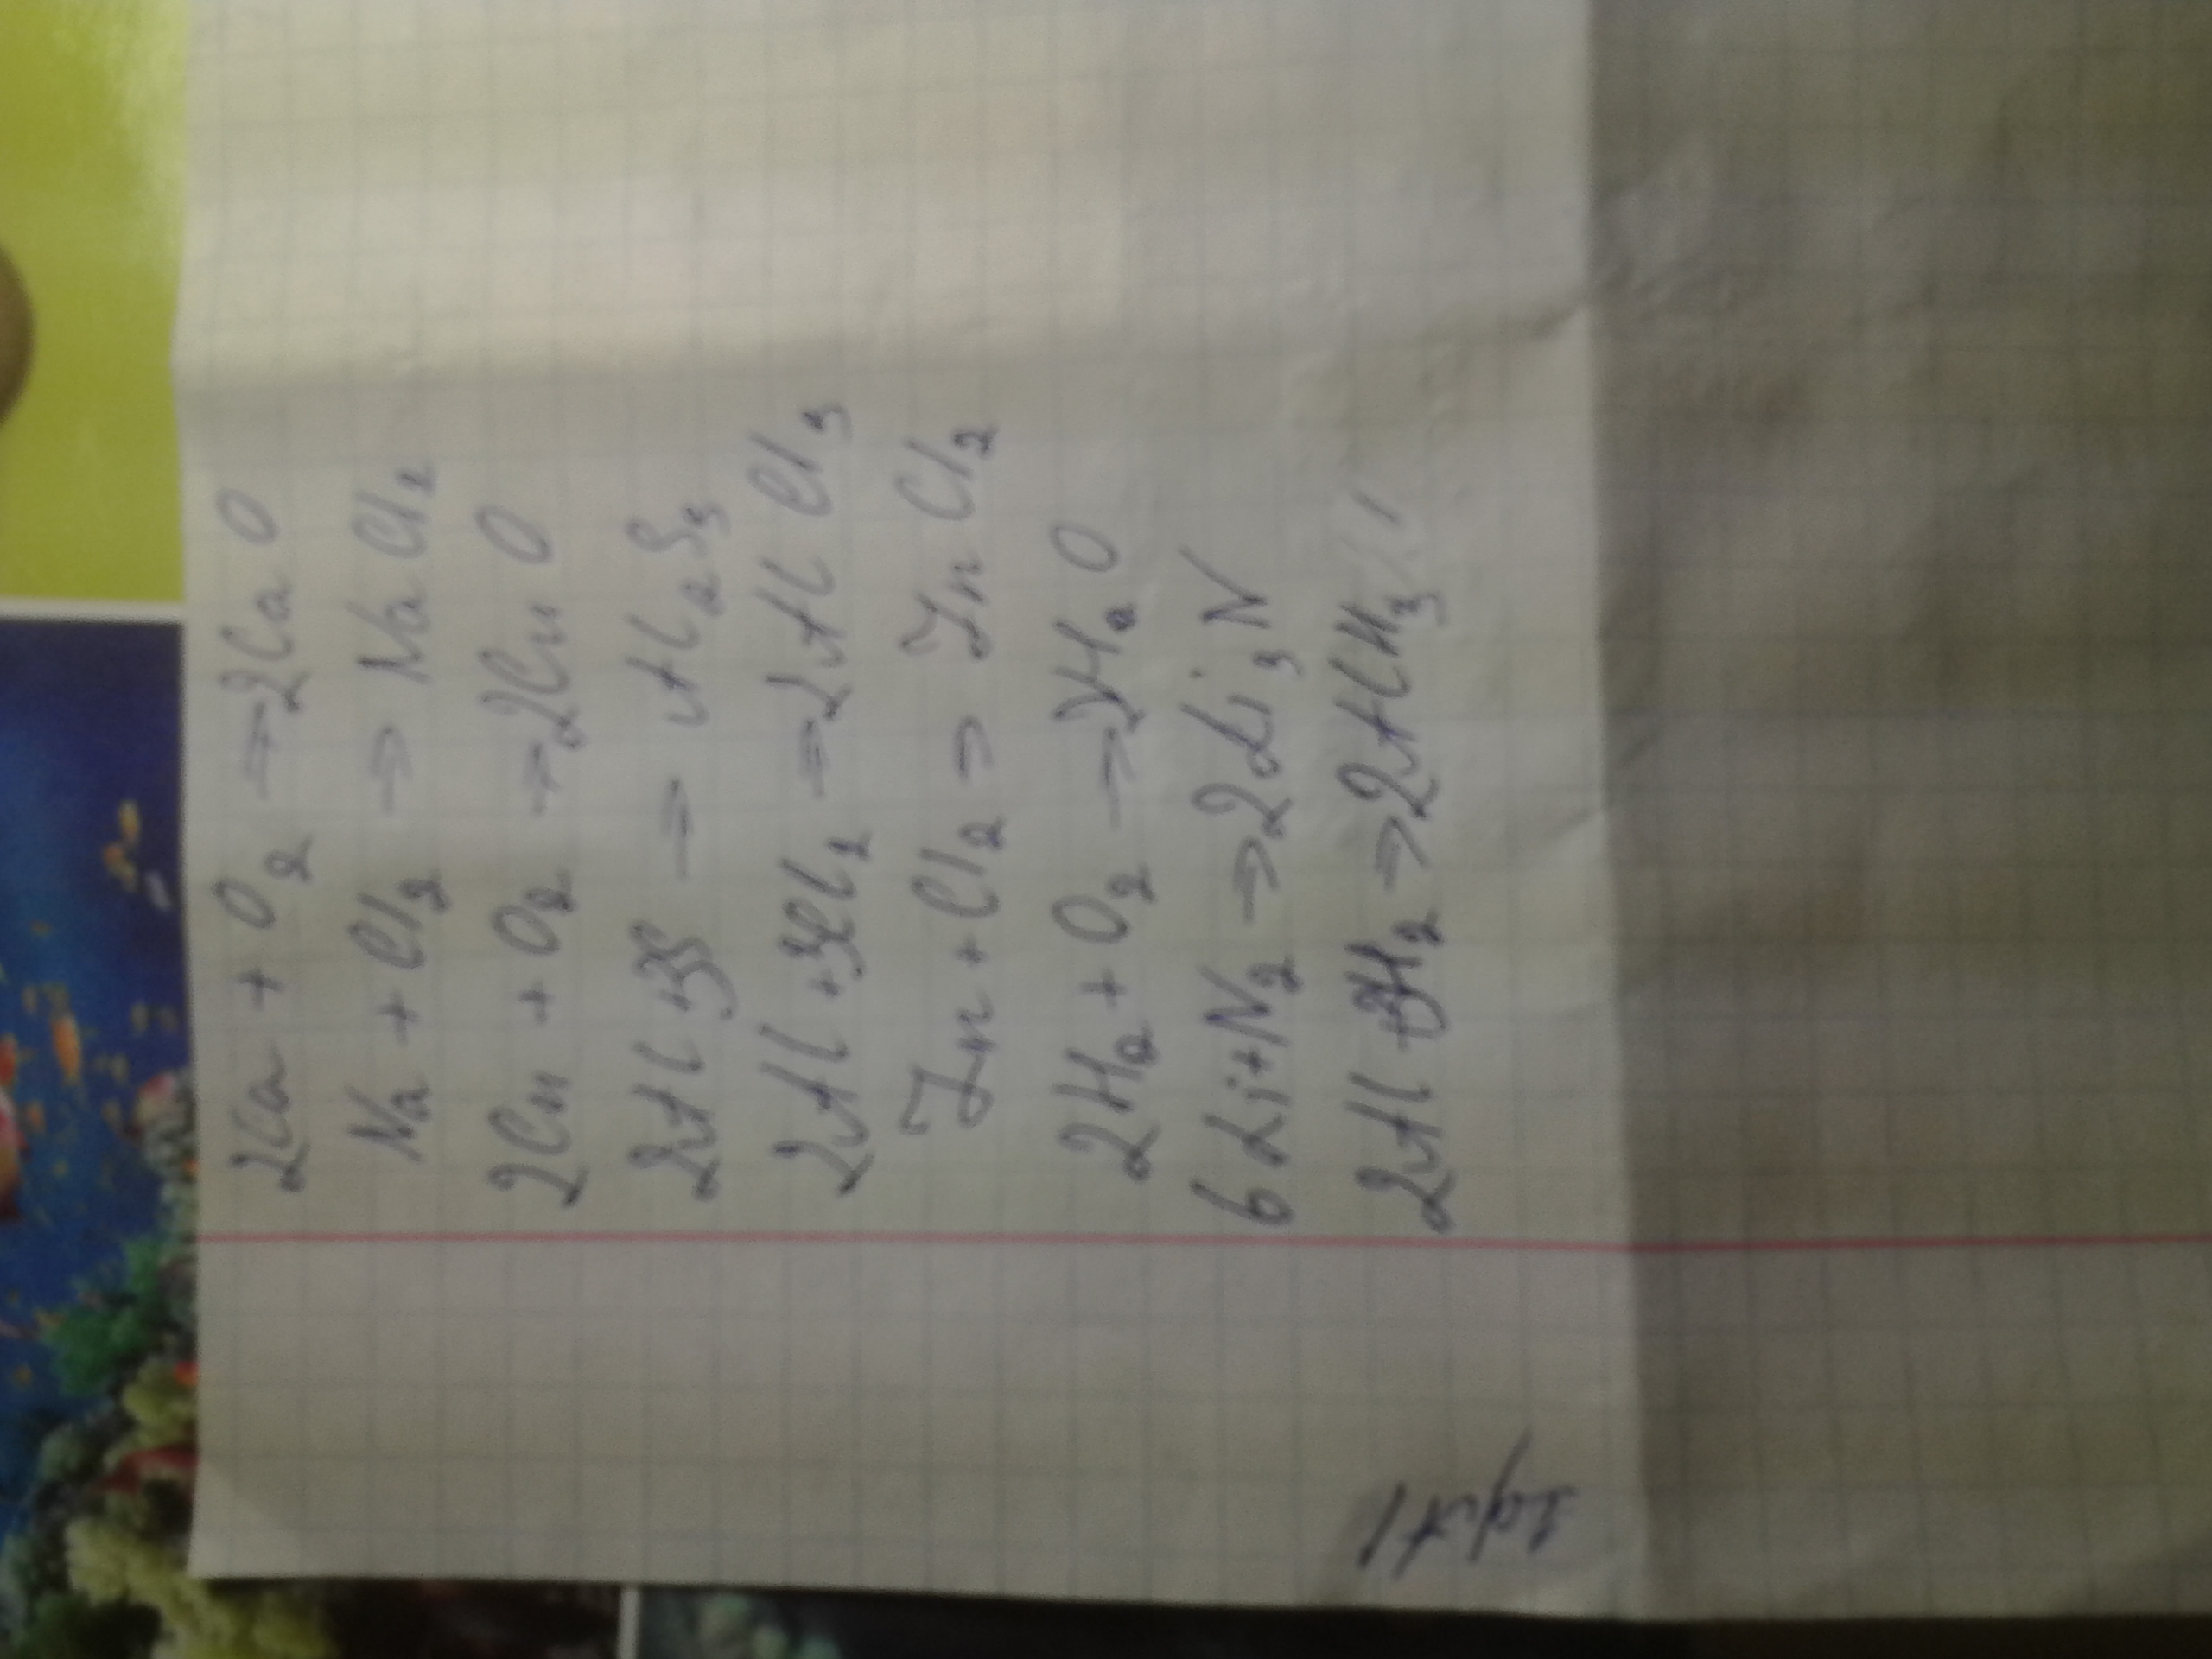 2Ca + O₂ → 2CaO
Na + Cl₂ → NaCl₂
2Cu + O₂ → 2CuO
2Al + 3S → Al₂S₃
2Al + 3Cl₂ → 2AlCl₃
Zn + Cl₂ → ZnCl₂
2H₂ + O₂ → 2H₂O
6Li + N₂ → 2Li₃N
2Al + 3H₂ → 2AlH₃